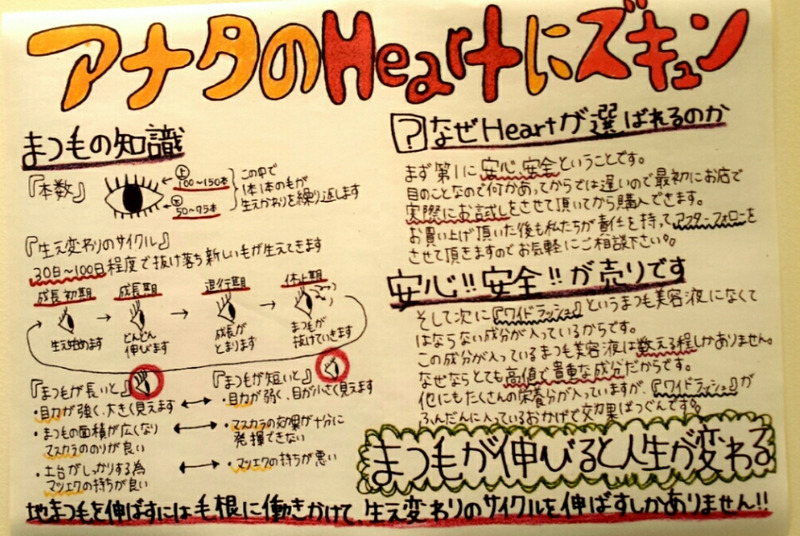 アナタのHeartにズキュン
まつもの知識
『本数』
㊤
100〜150本
㊦
50〜75本
この中で
1本1本のもが
生えかわりを繰り返します
『生え変わりのサイクル』
30日〜100日程度で抜け落ち新しいもが生えてきます
成長初期
成長期
退行期
休止期
生え始めます
どんどん
伸びます
成長が
とまります
まつもが
抜けていきます
『まつもが長いと』
・目力が強く、大きく見えます
・まつもの面積が広くなり
マスカラののりが良い
・土台がしっかりする為
マツエクの持ちが良い
『まつもが短いと』
・目力が弱く、目が小さく見えます
・マスカラの効果が十分に
発揮できない
・マツエクの持ちが悪い
?なぜHeartが選ばれるのか
まず第1に安心、安全ということです。
目のことなので何かあってからでは遅いので最初にお店で
実際にお試しをさせて頂いてから購入できます。
お買い上げ頂いた後も私たちが責任を持ってアフターフォローを
させて頂きますのでお気軽にご相談下さい。
安心!!安全!!が売りです
そして次に『ワイドラッシュ』というまつも美容液になくて
はならない成分が入っているからです。
この成分が入っているまつも美容液は数える程しかありません。
なぜならとても高値で貴重な成分だからです。
他にもたくさんの栄養分が入っていますが、『ワイドラッシュ』が
ふんだんに入っているおかげで効果ばつぐんです。
まつもが伸びると人生が変わる
地まつもを伸ばすには毛根に働きかけて、生え変わりのサイクルを伸ばすしかありません!!